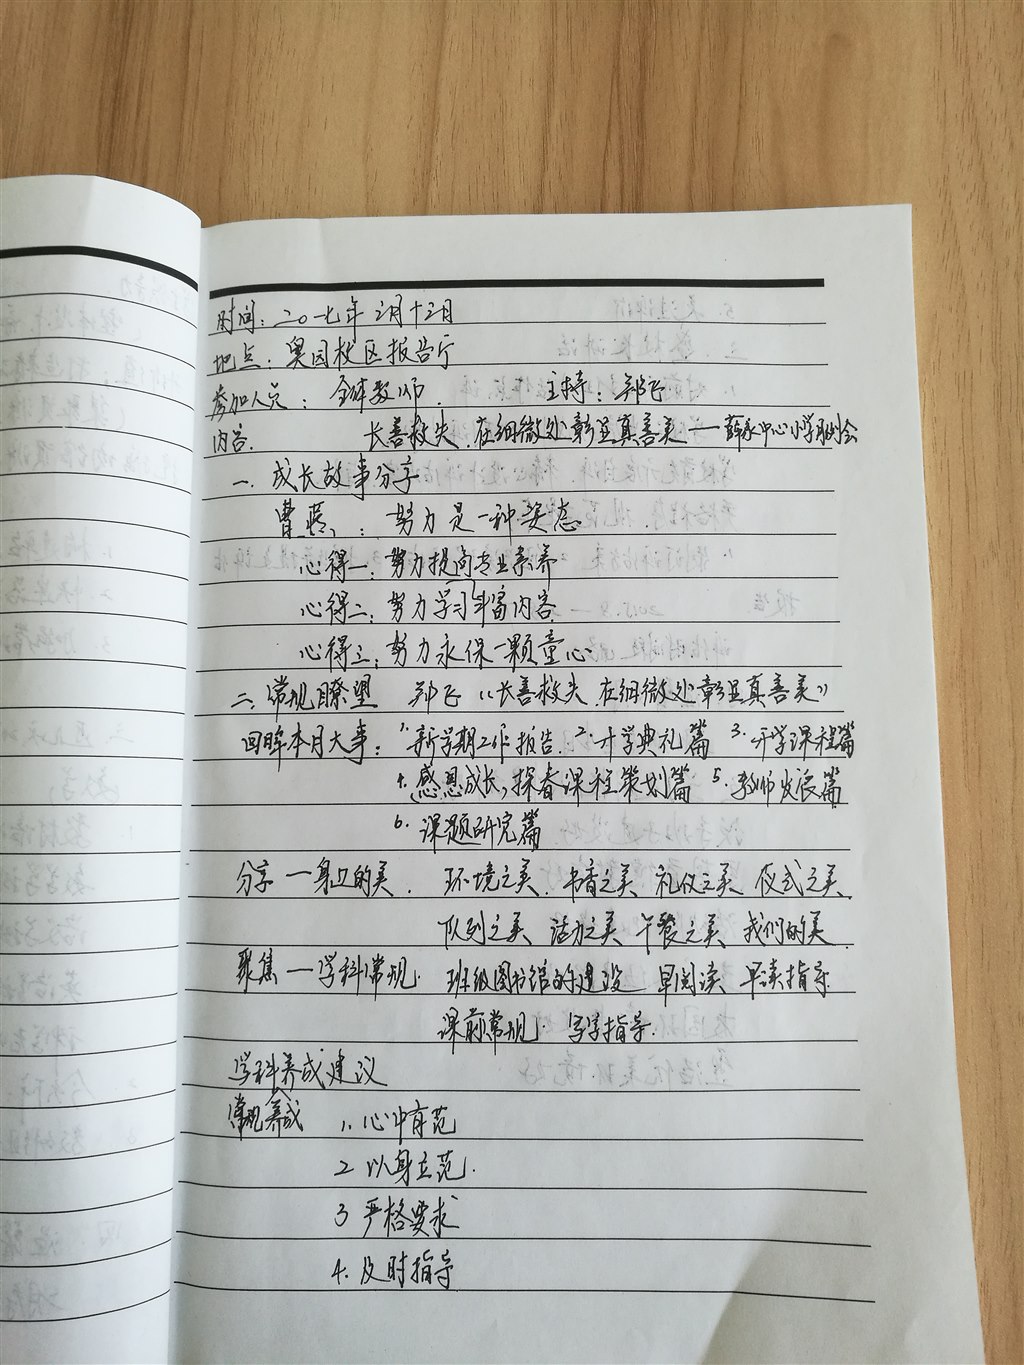 时间:二〇一七年三月十三日
地点:奥园校区报告厅
参加人员:全体教师. 主持:郑飞
内容. 长善救失.在细微处彰显真善美——薛家中心小学月例会
一.成长故事分享
曹 :努力是一种姿态
心得一:努力提高专业素养
心得二:努力学习丰富内容
心得三:努力永保一颗童心
二.常规瞭望 郑飞《长善救失.在细微处彰显真善美》
回眸本月大事:1.新学期工作报告.2.开学典礼篇 3.开学课程篇
4.感恩成长,探春课程策划篇 5.教师发展篇
6.课题研究篇
分享一身边的美. 环境之美.书香之美 礼仪之美 仪式之美
队列之美 活力之美 午餐之美 我们的美.
聚焦一学科常规. 班级图书馆的建设 早阅读 早读指导
课前常规. 写字指导.
学科养成建议
常规养成 1.心中有范
2 以身立范.
3 严格要求
4.及时指导